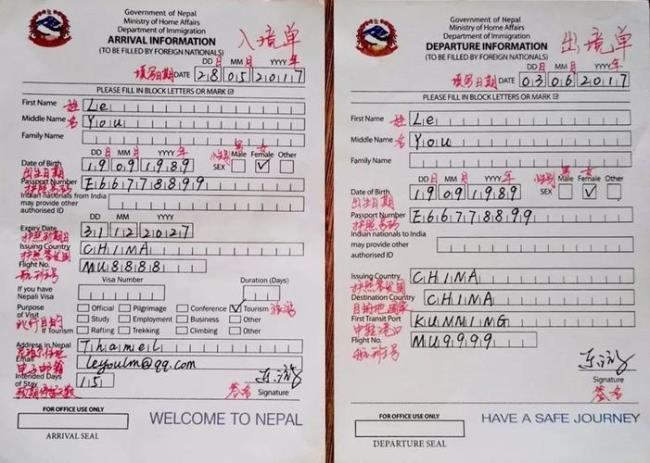 Government of Nepal
Ministry of Home Affairs
Department of Immigration
ARRIVAL INFORMATION
(TO BE FILLED BY FOREIGN NATIONALS)
入境单
DD日 MM月 YYYY年
填写日期 DATE 28 05 2017
PLEASE FILL IN BLOCK LETTERS OR MARK ☑
First Name 姓 Le
Middle Name 名 You
Family Name
DD日 MM月 YYYY年 男 女
Date of Birth 19 09 1989 性别 SEX Male Female ✓ Other
出生日期
Passport Number E66778899
护照号码
Indian nationals from India
may provide other
authorised ID
DD MM YYYY
Expiry Date 31 12 2027
护照到期日
Issuing Country CHINA
护照签发国
Flight No. MU8888
航班号
Visa Number Duration (Days)
If you have
Nepali Visa
Purpose Official Pilgrimage Conference ✓ Tourism 旅游
of Visit Study Employment Business Other
此行目的
If Tourism Rafting Trekking Climbing Other
Address in Nepal Thamel
Email leyoulm@qq.com
电子邮箱
Intended Days
of Stay 15
预期停留天数
Signature
签名
FOR OFFICE USE ONLY
ARRIVAL SEAL
WELCOME TO NEPAL
Government of Nepal
Ministry of Home Affairs
Department of Immigration
DEPARTURE INFORMATION
(TO BE FILLED BY FOREIGN NATIONALS)
出境单
DD日 MM月 YYYY年
填写日期 DATE 03 06 2017
PLEASE FILL IN BLOCK LETTERS OR MARK ☑
First Name 姓 Le
Middle Name 名 You
Family Name
DD日 MM月 YYYY年 男 女
Date of Birth 19 09 1989 性别 SEX Male Female ✓ Other
出生日期
Passport Number E66778899
护照号码
Indian nationals to India
may provide other
authorized ID
Issuing Country CHINA
护照签发国
Destination Country CHINA
目的地国家
First Transit Port KUNMING
中转港口
Flight No. MU9999
航班号
Signature
签名
FOR OFFICE USE ONLY
DEPARTURE SEAL
HAVE A SAFE JOURNEY